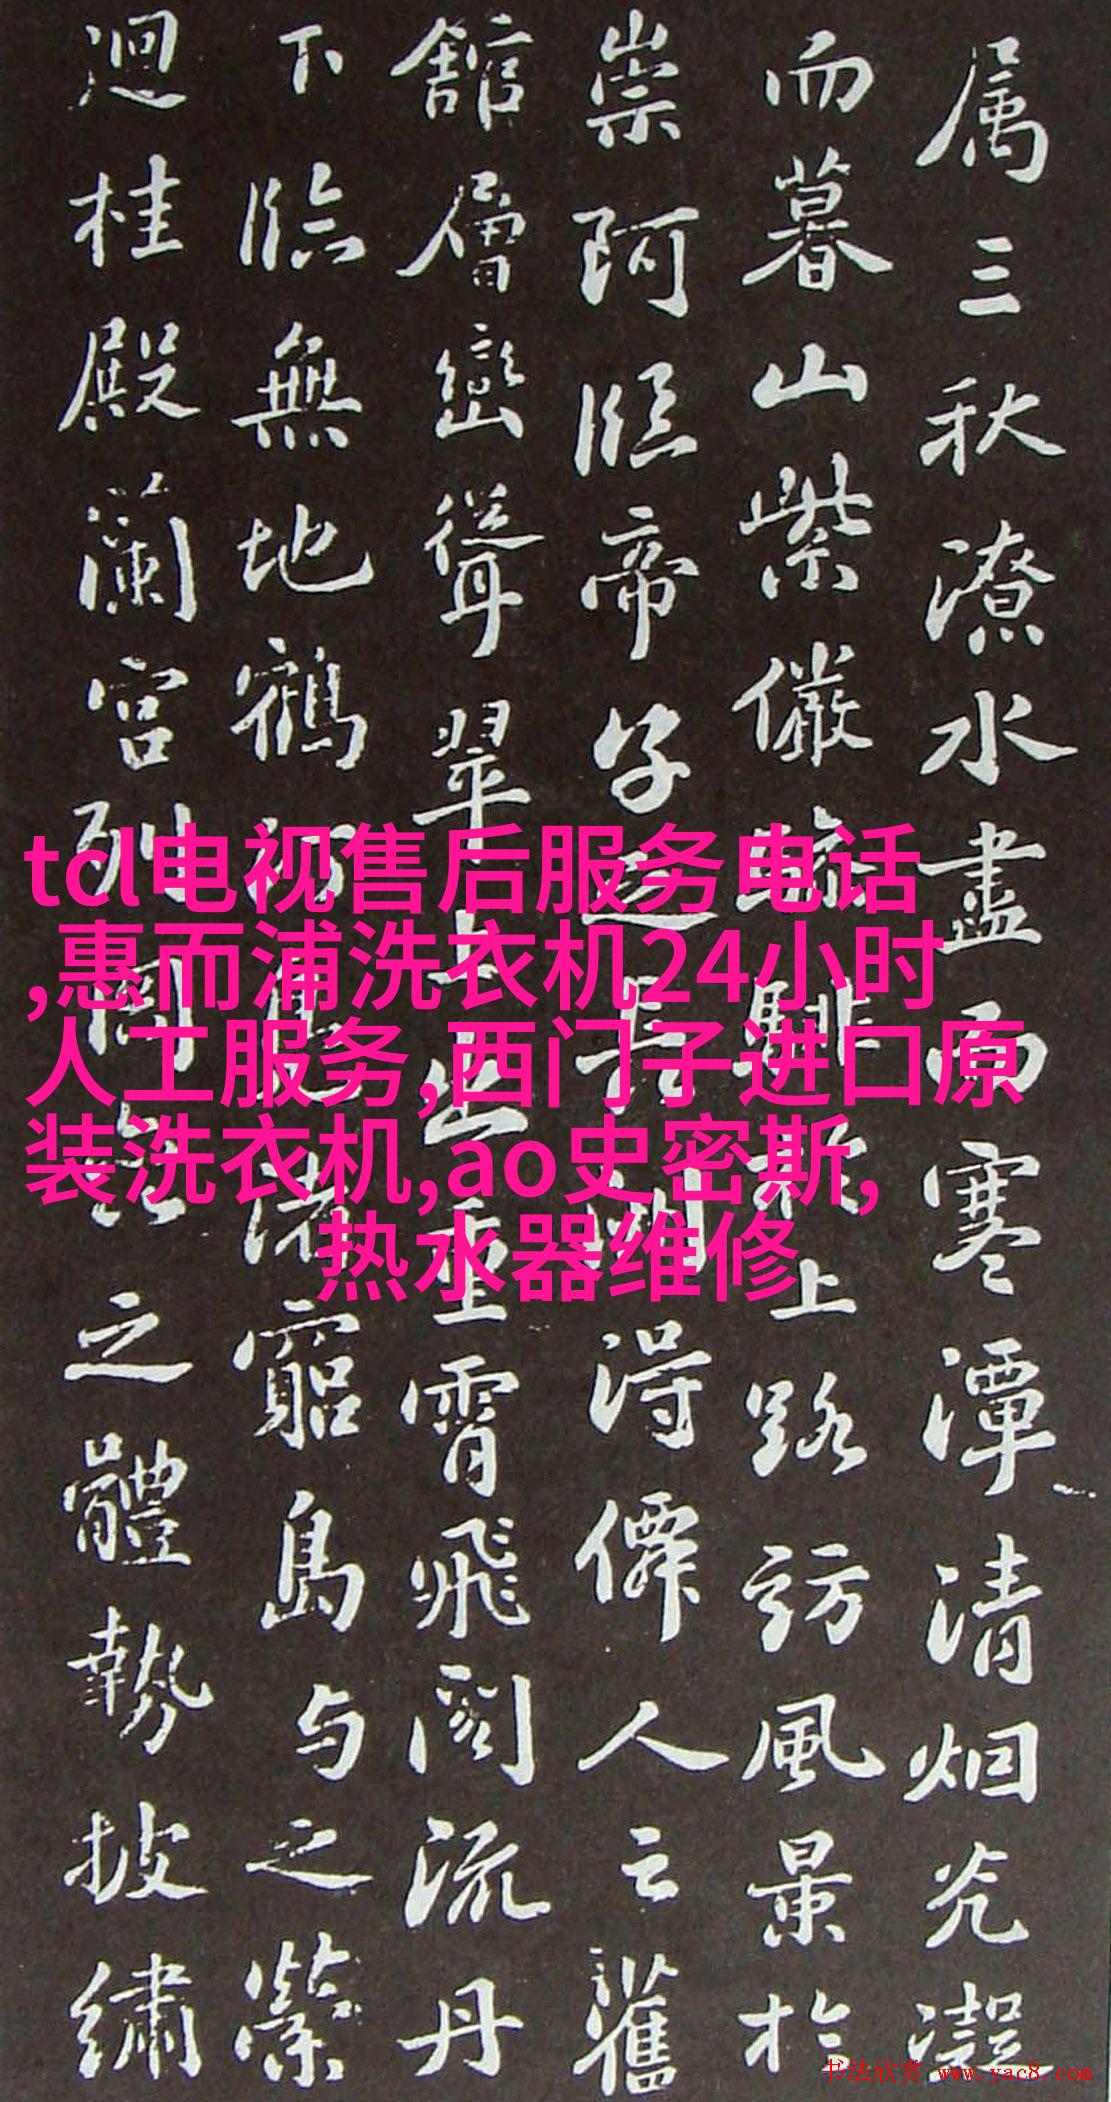 属三秋潦水盡而寒潭清烟光凝
而暮山紫儼驂騑於上路訪風景於
崇阿臨帝子之長洲得僊人之舊
館層巒聳翠上出重霄飛閣流丹
下臨無地鶴汀鳧渚窮島與之縈
迴桂殿蘭宮列岡巒之體勢披繡
tcl电视售后服务电话
,惠而浦洗衣机24小时
人工服务,西门子进口原
装洗衣机,ao史密斯,
热水器维修
书法欣赏 www.yac8.com